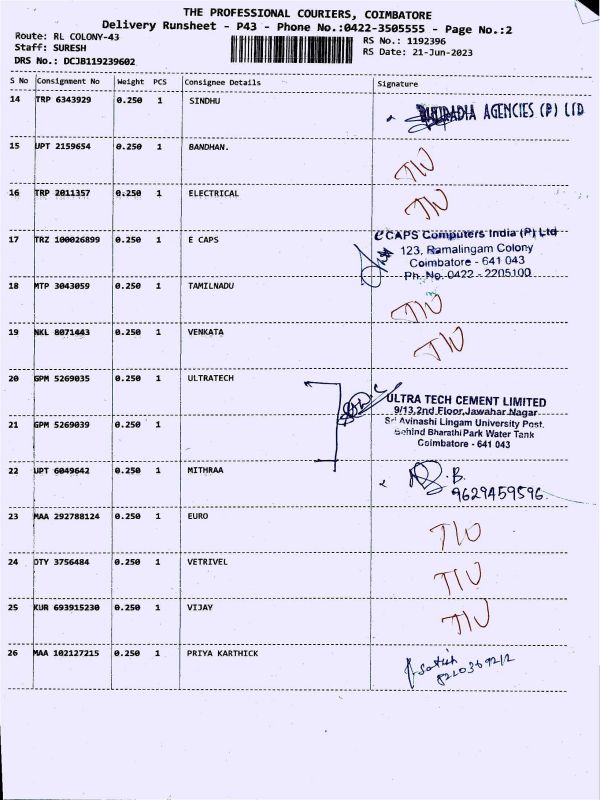 THE PROFESSIONAL COURIERS, COIMBATORE
Delivery Runsheet - P43 - Phone No.:0422-3505555 - Page No.:2
Route: RL COLONY-43
RS No.: 1192396
Staff: SURESH
RS Date: 21-Jun-2023
DRS No.: DCJB119239602
S No Consignment No Weight PCS Consignee Details Signature
14 TRP 6343929 0.250 1 SINDHU
AGENCIES (P) LTD
15 UPT 2159654 0.250 1 BANDHAN.
16 TRP 2011357 0.250 1 ELECTRICAL
17 TRZ 100026899 0.250 1 E CAPS
eCAPS Computers India (P) Ltd
123, Ramalingam Colony
Coimbatore - 641 043
Ph. No. 0422 - 2205100
18 MTP 3043059 0.250 1 TAMILNADU
19 NKL 8071443 0.250 1 VENKATA
20 GPM 5269035 0.250 1 ULTRATECH
ULTRA TECH CEMENT LIMITED
9/13,2nd Floor,Jawahar Nagar
Sri Avinashi Lingam University Post.
Behind Bharathi Park Water Tank
Coimbatore - 641 043
21 GPM 5269039 0.250 1
22 UPT 6049642 0.250 1 MITHRAA
B.
9629459596
23 MAA 292788124 0.250 1 EURO
24 OTY 3756484 0.250 1 VETRIVEL
25 KUR 693915230 0.250 1 VIJAY
26 MAA 102127215 0.250 1 PRIYA KARTHICK
Satish